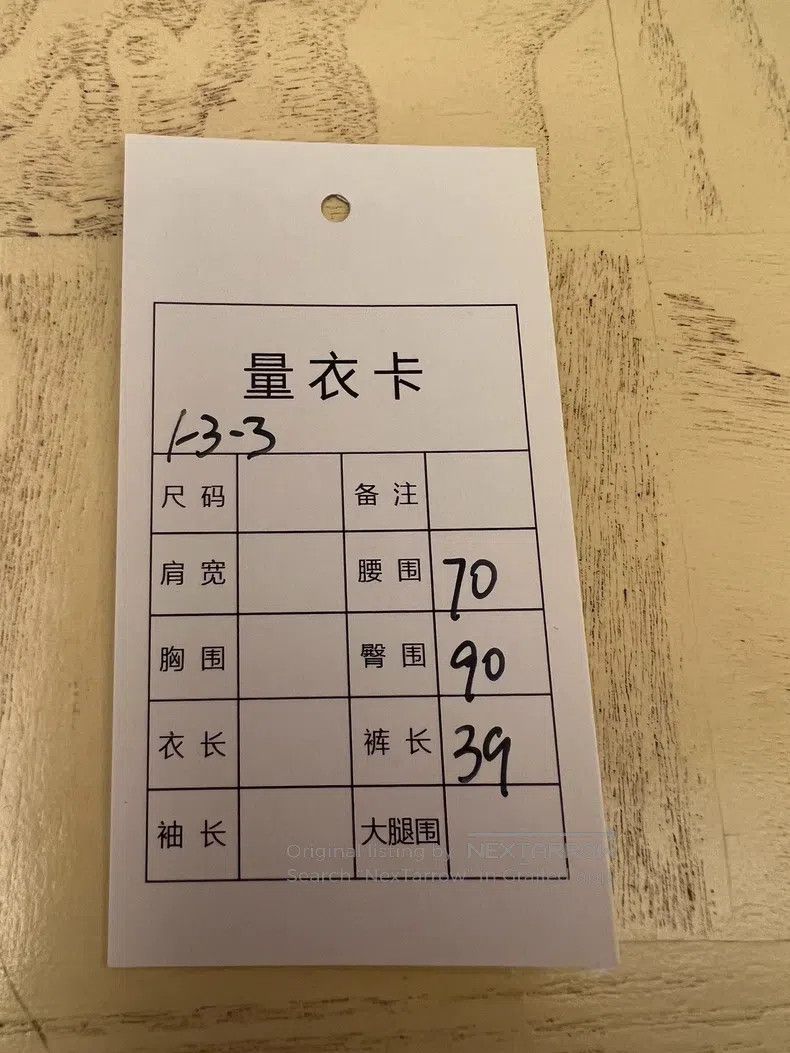 量衣卡
1-3-3
尺码 备注
肩宽 腰围 70
胸围 臀围 90
衣长 裤长 39
袖长 大腿围
Original listing by NEXTARROW
Search "NexTarrow" in Grailed app